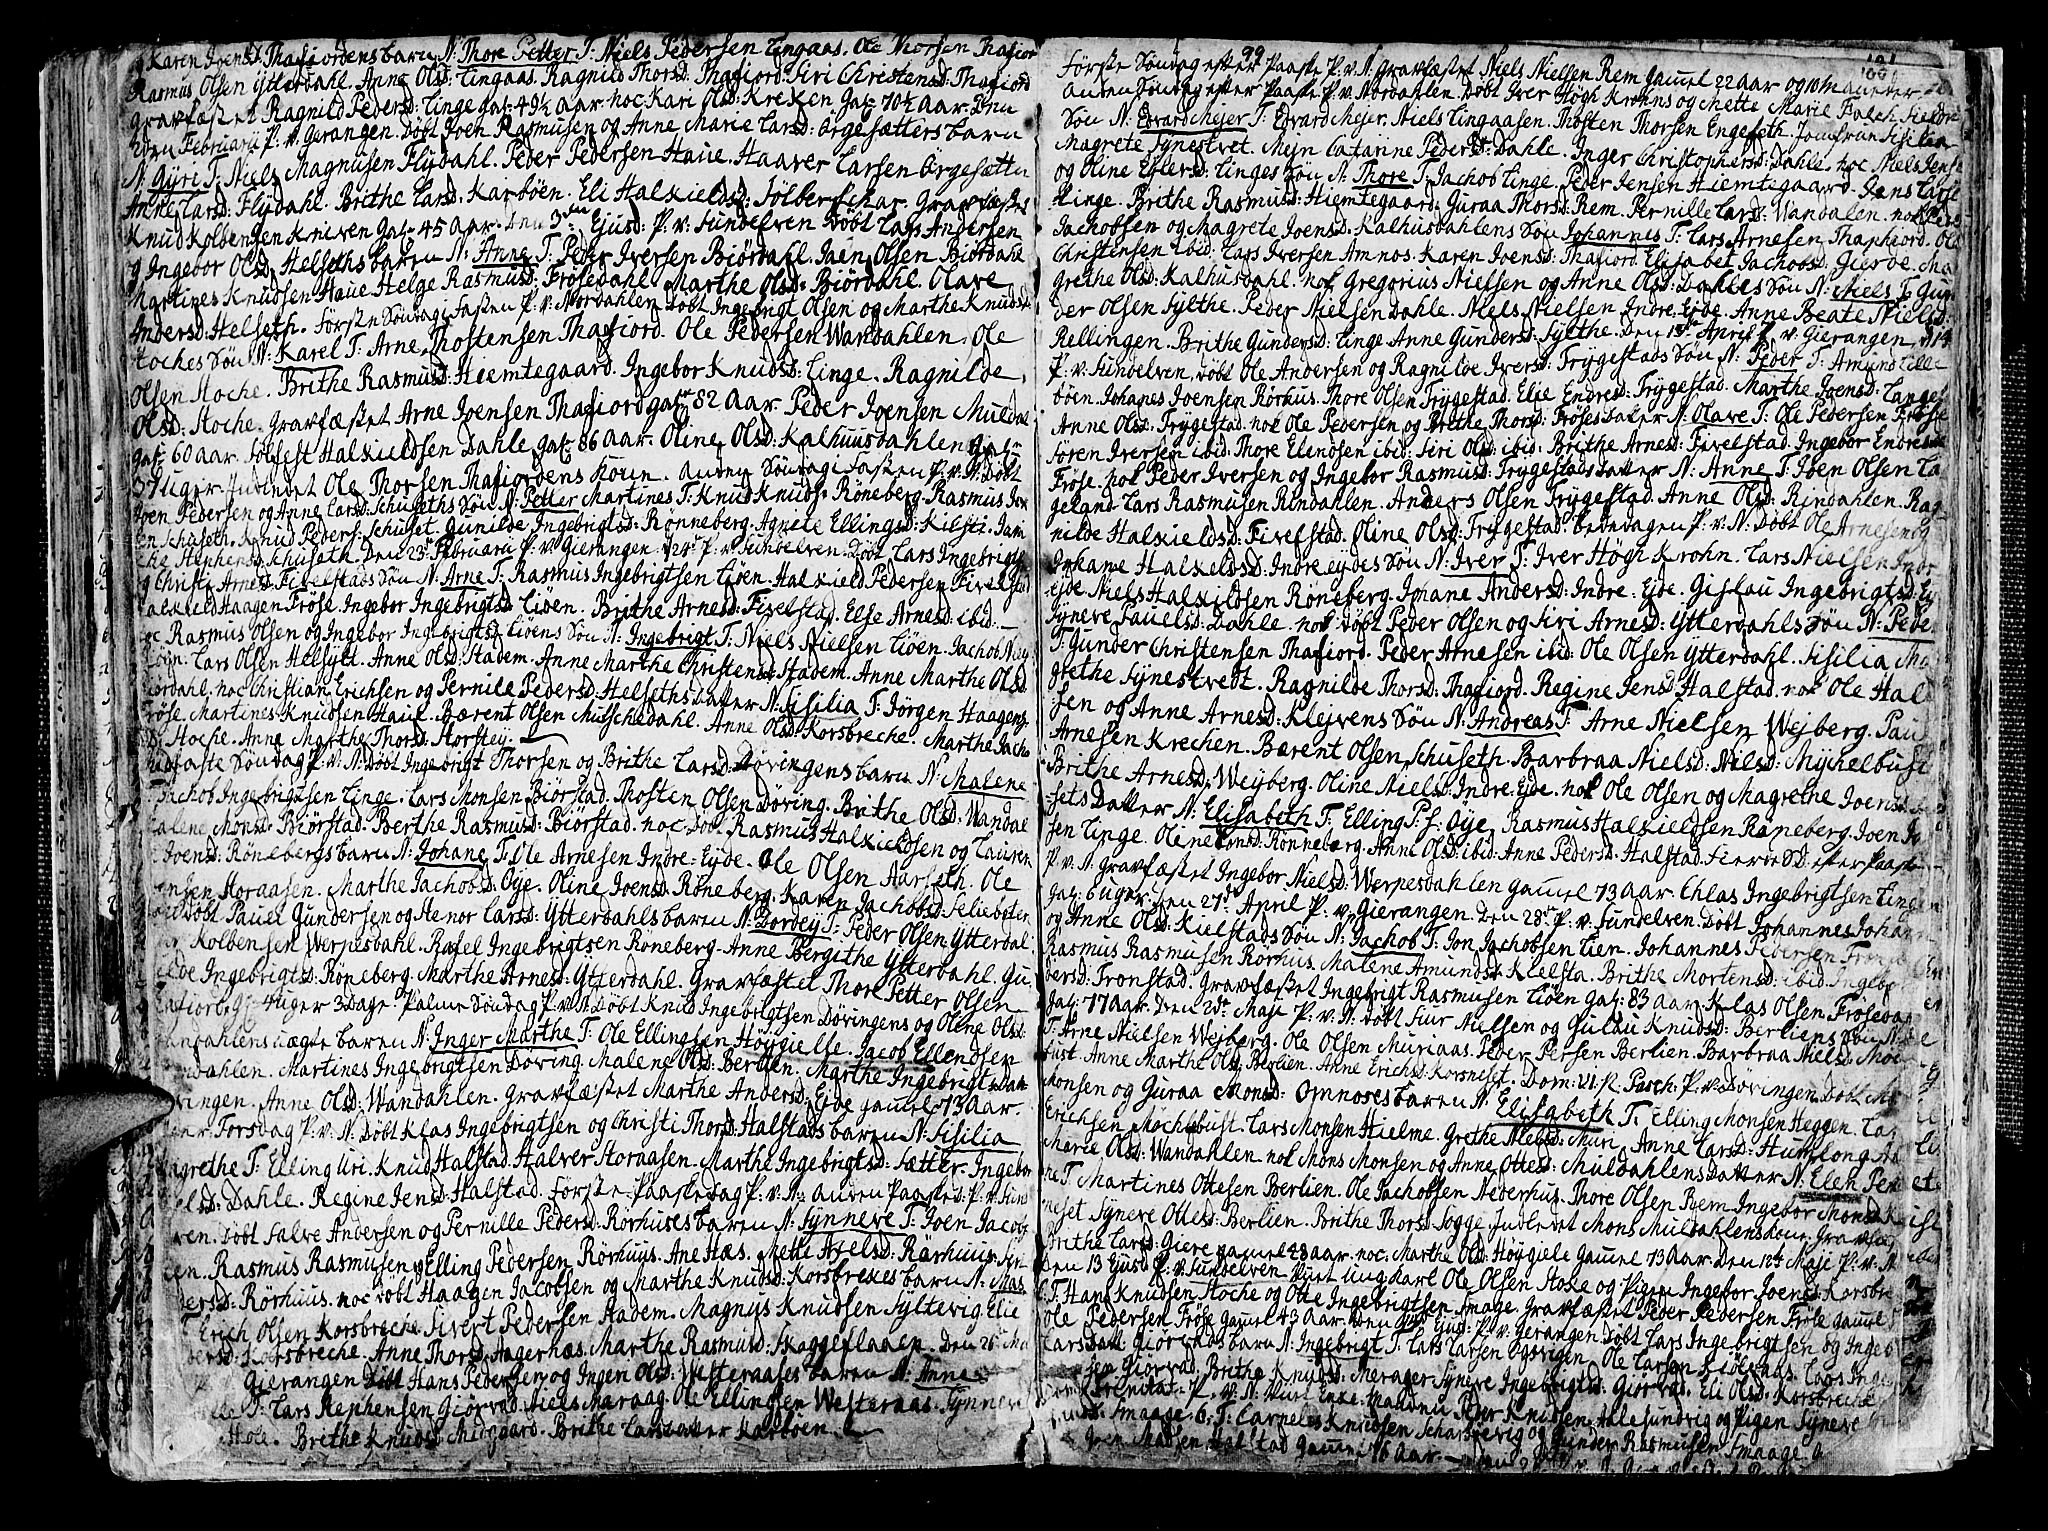 Karen Joensd: Thafiordens barn N: Thore Petter T: Niels Pedersen Lingaas. Ole Thorsen Thafior
Rasmus Olsen Ytterdahl. Anne Olsd: Lingaas. Ragnild Thorsd: Thafiord Siri Christensd: Thafiord
gravfæstet Ragnild Pedersd: Linge gal: 49½ aar noc Kari Olsd: Kreken gal: 70½ aar. Den
Februarii P. v. Gierangen. Døbt Joen Rasmusen og Anne Marie Larsd: Ørgesætters barn
N: Gyri T: Niels Magnusen Flydahl. Peder Pedersen Haue. Haaver Larsen Ørgesætter
Anne Larsd: Flydahl. Brithe Larsd: Karbøen. Eli Halkieldsd: gravfæstet
Knud Kolbensen Knieven gal: 45 aar. Den 3die Ejusd: P. v. Sundelven Døbt Lars Andersen
og Ingebor Olsd: Helseths barn N: Anne T: Peder Iversen Biørdahl. Jaen Olsen Biørdahl
Martines Knudsen Haue Helge Rasmusd: Frøsedahl. Marthe Olsd: Biørdahl. Olave
Andersd: Helseth. Første Søndag i Fasten P. v. Nordahlen Døbt Ingebrigt Olsen og Marthe Knudsd:
Hoches Søn N: Karel T: Arne Thostensen Thafiord. Ole Pedersen Wandahlen. Ole
Olsen Hoche. Brithe Rasmusd: Hiemtegaard. Ingebor Knudsd: Linge. Ragnilde
Olsd: Hoche. gravfæstet Arne Joensen Thafiord gal: 82 aar. Peder Joensen Muldal
gal: 60 aar. Halkieldsen Dahle gal: 86 aar. Oline Olsd: Kalhuusdahlen gal:
3 Uger. Indledet Ole Thorsen Thafiordens Koun. Anden Søndag i Fasten P. v. N. Døbt
Joen Pedersen og Anne Larsd: Schuseths Søn N: Petter Martines T: Knud Knuds: Røneberg. Rasmus
Schuseth. Knud Peders: Schuset. Gunilde Ingebrigtsd: Rønneberg. Agnete Ellingsd:
Stephensd: Schuseth. Den 23de Februarii P. v. Gierangen. d: 24de P. v. Sundelven. Døbt Lars Ingebrigts
og Christi Arnesd: Fivelstads Søn N: Arne T: Rasmus Ingebrigtsen Liøen. Halkield Pedersen Fivelstad
Halkield Haagen Frøse. Ingebor Ingebrigtsd: Liøen. Brithe Arnesd: Fivelstad. Else Arnesd: ibid:
Rasmus Olsen og Ingebor Ingebrigtsd: Liøens Søn N: Ingebrigt T: Niels Nielsen Liøen. Jachob
Liøen. Lars Olsen Helsytt. Anne Olsd: Stadem. Anne Marthe Christensd: Stadem. Anne Marthe Olsd:
noc Christian Erichsen og Pernile Pedersd: Helseths Datter N: Sisilia T: Jørgen Haagens
Frøse. Martines Knudsen Haue. Bærent Olsen Mulschedahl. Anne Olsd: Korsbreche. Marthe
Hoche. Anne Marthe Thorsd: Storstey.
Midfaste Søndag P. v. N. Døbt Ingebrigt Thorsen og Brithe Larsd: Døvingens barn N: Malene
T: Jachob Ingebrigtsen Linge. Lars Monsen Biørstad. Thosten Olsen Døving. Brithe Olsd: Wandal
Malene Monsd: Biørstad. Berthe Rasmusd: Biørstad. noc Døbt Rasmus Halkieldsen og
Joensd: Rønebergs barn N: Johane T: Ole Arnesen Indre Eyde. Ole Olsen Aarseth. Ole
Horaasen. Marthe Jachobsd: Øye. Oline Joensd: Røneberg. Karen Jachobsd:
Døbt Pauel Gundersen og Henor Larsd: Ytterdahls barn N: Bordey T: Peder Olsen Ytterdal
Kolbensen Werpesdahl. Rasel Ingebrigtsen Røneberg. Anne Bergithe Ytterdahl. Gu
Ingebrigtsd: Røneberg. Marthe Arnesd: Ytterdahl. Gravfæstet Thore Petter Olsen
Thafiord gl: 4 uger 3 Dage. Palme Søndag P. v. N. Døbt Knud Ingebrigtsen Døvingens og Oline Olsd:
Wandahlens uægte barn N: Inger Marthe T: Ole Ellingsen Høygielle. Jacob Ellendsen
Martines Ingebrigtsen Døving. Malene Olsd: Berlien. Marthe Ingebrigtsdatt
Døvingen. Anne Olsd: Wandahlen. Gravfæstet Marthe Andersd: Eyde gamel 73 Aar.
Torsdag P. v. N. Døbt Klas Ingebrigtsen og Christi Thorsd: Halstads barn N: Sisilia
Magrethe T: Elling Uri. Knud Halstad. Halver Horaasen. Marthe Ingebrigtsd: Sætter. Ingebor
Dahle. Regine Jensd: Halstad. Første Paaskedag P. v. N. anden Paasked: P. v. Sund
Døbt Salve Andersen og Pernille Pedersd: Rørhuses barn N: Synneve T: Joen Jacobs
Rasmus Rasmusen og Elling Pedersen Rørhuus. Ane Hæs. Mette Axelsd: Rørhuus
Rørhuus. noc Døbt Haagen Jacobsen og Marthe Knudsd: Korsbrekes barn N: Mar
T: Erich Olsen Korsbreche. Sivert Pedersen Stadem. Magnus Knudsen Syltevig. Elie
Korsbreche. Anne Thorsd: Aagernæs. Marthe Rasmusd: Skaggeflaaen. Den 26
Gierangen Døbt Hans Pedersen og Ingen Olsd: Westeraases barn N: Anne
T: Lars Stephensen Giørvad. Niels Maraag. Ole Ellingsen Westeraas. Synneve
Hole. Brithe Knudsd: Miogaard. Brithe Larsdatter Karbøen.
99
Første Søndag efter Paaske P. v. N. gravfæstet Niels Nielsen Rem gamel 22 Aar og 10 Maaneder
anden Søndag efter Paaske P. v. Nordahlen Døbt Iver Høgh Krohns og Mette Marie Falch
Søn N: Edvard Mejer T: Edvard Mejer. Niels Lingaasen. Thosten Thorsen Engeseth. Jomfru Sisilia
Magrete Synestvet. Catarine Pedersd: Dahle. Inger Christophersd: Dahle. noc Niels Jens
og Oline Ellersd: Linges Søn N: Thore T: Jachob Linge. Peder Jensen Hiemtegaard. Jens Larse
Linge. Brithe Rasmusd: Hiemtegaard. Guraa Thorsd: Rem. Pernille Larsd: Wandalen. nok Peder
Jachobsen og Magrete Joensd: Kalhusdahlens Søn Johannes T: Lars Arnesen Thaphiord. Ole
Christensen ibid: Lars Iversen Amnos. Karen Joensd: Thafiord. Elisabet Jachobsd: Gierde. Ma
grethe Olsd: Kalhusdahl. nok Gregorius Nielsen og Anne Olsd: Dahles Søn N: Niels T: Gun
der Olsen Sylthe. Peder Nielsen Dahle. Niels Nielsen Indre Eyde. Anne Beate Nielsd:
Rellingen. Brithe Gundersd: Linge Anne Gundersd: Sylthe. Den 13de April P. v. Gierangen d: 14
P. v. Sundelven, Døbt Ole Andersen og Ragnilde Iversd: Frygestads Søn N: Peder T: Amund Lille
bøen. Johanes Joensen Rørhus. Thore Olsen Frygestad. Else Endresd: Frygestad. Marthe Joensd: Lange
Anne Olsd: Frygestad. nok Ole Pedersen og Brethe Thorsd: Frøses datter N: Olave T: Ole Pedersen Frøse
Søren Iversen ibid: Thore Elendsen ibid: Siri Olsd: ibid: Brithe Arnesd: Fivelstad. Ingebor Endresd
Frøse. nok Peder Iversen og Ingebor Rasmusd: Frygestads datter N: Anne T: Joen Olsen La
geland. Lars Rasmusen Rindahlen. Anders Olsen Frygestad. Anne Olsd: Rindahlen. Rag
nilde Halkieldsd: Fivelstad. Oline Olsd: Frygestad. Bededagen P. v. N. Døbt Ole Arnesen og
Johane Halkieldsd: Indreeydes Søn N: Iver T: Iver Høgh Krohn. Lars Nielsen Indre
Eyde. Niels Halkieldsen Røneberg. Johane Andersd: Indre-Eyde. Gislau Ingebrigtsd: Ey
Syneve Pauelsd: Dahle. nok Døbt Peder Olsen og Siri Arnesd: Ytterdahls Søn N: Pede
T: Gunder Christensen Thafiord. Peder Arnesen ibid: Ole Olsen Ytterdahl. Sisilia Ma
grethe Synestvedt. Ragnilde Thorsd: Thafiord. Regine Jensd: Halstad. nok Ole Hal
sen og Anne Arnesd: Klejvens Søn N: Andreas T: Arne Nielsen Wejberg. Pau
Arnesen Krechen. Bærent Olsen Schuseth. Barbraa Nielsd: Nilsd: Myckelbust
Brithe Arnesd: Weyberg. Oline Nielsd: Indre Eyde. nok Ole Olsen og Magrethe Joensd
sets Datter N: Elisabeth T: Elling P: S: Øye. Rasmus Halkieldsen Røneberg. Joen
sen Linge. Oline Rønneberg. Anne Olsd: ibid: Anne Pedersd: Halstad. Fierde S: efter Paaske
P. v. N. Gravfæstet Ingebor Nielsd: Werpesdahlen gamel 73 Aar. Chlas Ingebrigtsen Lingen
gal: 6 Uger. Den 27de April P. v. Gierangen. Den 28de P. v. Sundelven. Døbt Johannes Johan
og Anne Olsd: Kielstads Søn N: Jachob T: Jon Jachobsen Lien. Johannes Pedersen
Rasmus Rasmusen Rørhus. Malene Amundsd: Kielsta. Brithe Mortensd: ibid. Ingebo
bersd: Fronstad. Gravfæstet Ingebrigt Rasmusen Liøen gal: 83 aar. Klas Olsen Frøsedal
gal: 77 Aar. Den 2de Maji P. v. N. Døbt Siur Nielsen og Gislau Knudsd: Berliens Søn N:
T: Arne Nielsen Wejberg. Ole Olsen Muriaas. Peder Persen Berlien. Barbraa Nielsd:
bust. Anne Marthe Olsd: Berlien. Anne Erichsd: Korsneset. Dom: VI. p. Pasch: P. v. Døvingen. Døbt
Monsen og Guraa Monsd: Omnoses barn N: Elisabeth T: Elling Monsen Heggen.
Erichsen Møchlebust. Lars Monsen Hielme. Grethe Nielsd: Muri. Anne Larsd: Humlong
Marie Olsd: Wandahlen nok Mons Monsen og Anne Ottesd: Muldahlens Datter N: Elen Per
T: Martines Ottesen Berlien. Ole Jachobsen Nederhus. Thore Olsen Rem. Ingebor Monsd:
neset. Syneve Ottesd: Berlien. Brithe Thorsd: Sogge. Indledet Mons Muldahlens Koun. Gravfæ
Brithe Larsd: Giere gamel 28 aar. noc Marthe Olsd: Høygiele gamel 73 aar. Den 12te Maji P. v. N.
Den 13 Ejusd: P. v. Sundelven Viet Ungkarl Ole Olsen Stoxe og Pigen Ingebor Joensd: Korsbre
T: Hans Knudsen Hoche og Otte Ingebrigtsen Smage. Gravfæstet Peder Pedersen Frøse gamel
Ole Pedersen Frøse gamel 43 aar. Den Ejusd: P. v. Gerangen Døbt Lars Ingebrigtsen og Ingeb
Larsdatt: Giørvads barn N: Ingebrigt T: Lars Larsen Opsvigen. Ole Larsen. Lars Inge
sen Giørvad. Brithe Knudsd: Meraag. Synneve Ingebrigtsd: Giørvad. Eli Olsd: Korsbreche
Trenitat: P. v. N. Viet Enke-manden Peder Knudsen Aalesundvig og Pigen Synneve
Smaage. T: Carneles Knudsen og Gunder Rasmusen Smaage.
Joen Madsen Halstad gamel 76 Aar.